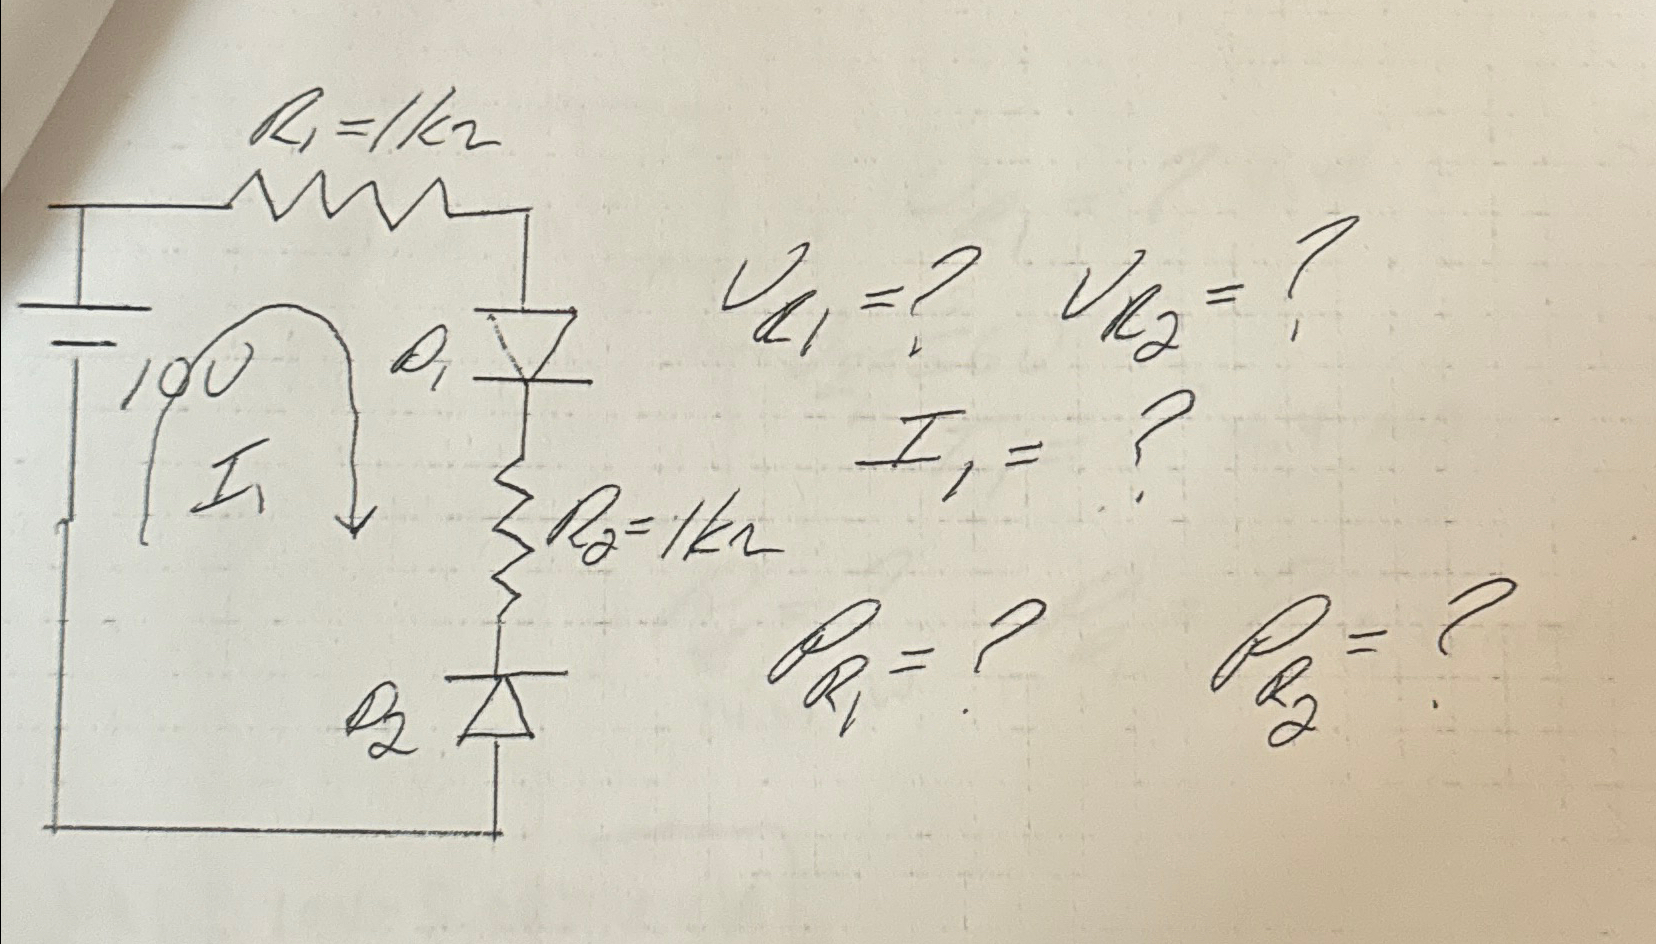 R1=1kΩ
10V
I1
D1
R2=1kΩ
D2
VR1=? VR2=?
I1=?
PR1=? PR2=?